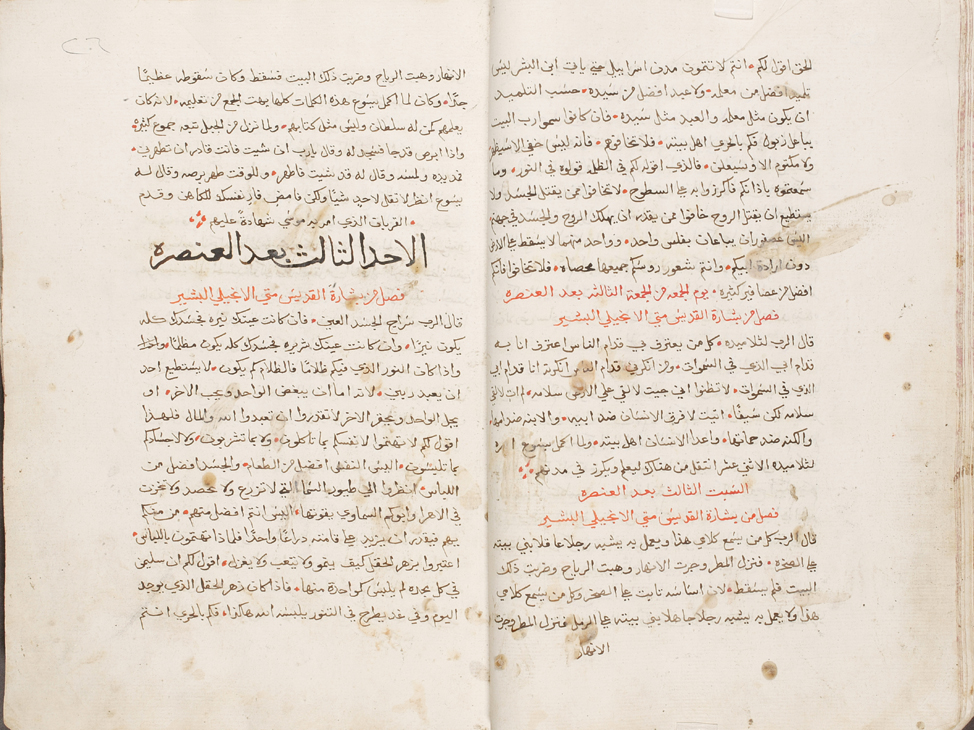 الحق اقول لكم انتم لا تتمون مدن اسراييل حتي ياتي ابن البشر ليس
تلميذ افضل من معلمه ولا عبد افضل من سيده حسب التلميد
ان يكون مثل معلمه والعبد مثل سيده فان كانوا سموا رب البيت
باعل زبول فكم بالحري اهل بيته فلا تخافوهم فانه ليس خفي الا سيظهر
ولا مكتوم الا وسيعلن فالذي اقوله لكم في الظلمه قولوه في النور وما
سمعتموه باذانكم فاكرزوا به علي السطوح لا تخافوا ممن يقتل الجسد ولا
يستطيع ان يقتل الروح خافوا ممن يقدر ان يهلك الروح والجسد في جهنم
اليس عصفوران يباعان بفلس واحد وواحد منهما لا يسقط علي الارض
دون ارادة ابيكم وانتم شعور روسكم جميعها محصاه فلا تخافوا فانكم
افضل من عصافير كثيره يوم الجمعه من الجمعة الثالثه بعد العنصره
فصل من بشارة القديس متي الانجيلي البشير
قال الرب لتلاميده كل من يعترف بي قدام الناس اعترف انا به
قدام ابي الذي في السموات ومن انكرني قدام الناس انكرته انا قدام ابي
الذي في السموات لا تظنوا اني جيت لالقي علي الارض سلامه لم ات لالقي
سلامه لكن سيفا اتيت لافرق الانسان ضد ابيه والابنه ضد امها
والكنه ضد حماتها واعدا الانسان اهل بيته ولما اكمل يسوع امره
لتلاميده الاثني عشر انتقل من هناك ليعلم ويكرز في مدنهم
السبت الثالث بعد العنصره
فصل من بشارة القديس متي الانجيلي البشير
قال الرب كل من يسمع كلامي هذا ويعمل به يشبه رجلا عاقلا بني بيته
علي الصخره فنزل المطر وجرت الانهار وهبت الرياح وضربت ذلك
البيت فلم يسقط لان اساسه ثابت علي الصخر وكل من يسمع كلامي
هذا ولا يعمل به يشبه رجلا جاهلا بني بيته علي الرمل فنزل المطر وجرت
الانهار
الانهار وهبت الرياح وضربت ذلك البيت فسقط وكان سقوطه عظيما
جدا وكان لما اكمل يسوع هذه الكلمات كلها بهت الجمع من تعليمه لانه كان
يعلمهم كمن له سلطان وليس مثل كتابهم ولما نزل من الجبل تبعه جموع كثيره
واذا ابرص قد جا فسجد له وقال يارب ان شيت فانت قادر ان تطهرني
فمد يده ولمسه وقال له قد شيت فاطهر وللوقت طهر برصه وقال له
يسوع انظر لا تقل لاحد شيا ولكن فامض فار نفسك للكاهن وقدم
القربان الذي امر به موسي شهادة عليهم
الاحد الثالث بعد العنصره
فصل من بشارة القديس متي الانجيلي البشير
قال الرب سراج الجسد العين فان كانت عينك نيره فجسدك كله
يكون نيرا وان كانت عينك شريره فجسدك كله يكون مظلما
واذا كان النور الذي فيك ظلاما فالظلام كم يكون لا يستطيع احد
ان يعبد ربين لانه اما ان يبغض الواحد ويحب الاخر او
يجل الواحد ويحقر الاخر لا تقدروا ان تعبدوا الله والمال فلهدا
اقول لكم لا تهتموا لانفسكم بما تاكلون ولا بما تشربون ولا لاجسادكم
بما تلبسون اليس النفس افضل من الطعام والجسد افضل من
اللباس انظروا الي طيور السما التي لا تزرع ولا تحصد ولا تخزن
في الاهرا وابوكم السماوي يقوتها اليس انتم افضل منهم من منكم
يهم فيقدر ان يزيد علي قامته دراعا واحدا فلماذا تهتمون باللباس
اعتبروا بزهر الحقل كيف ينمو ولا يتعب ولا يغزل اقول لكم ان سليمن
في كل مجده لم يلبس كواحدة منها فاذا كان زهر الحقل الذي يوجد
اليوم وفي غد يطرح في التنور يلبسه الله هاكذا فكم بالحري انتم